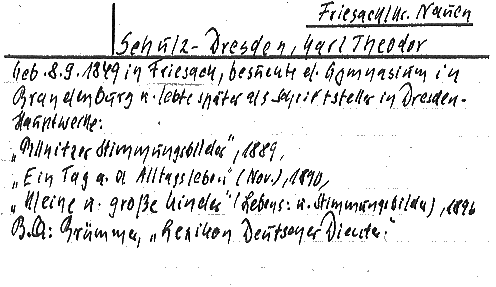 Friesack/Kr. Nauen
Schulz-Dresden, Karl Theodor
Geb. 8.9.1849 in Friesack, besuchte d. Gymnasium in
Brandenburg u. lebte später als Schriftsteller in Dresden.
Hauptwerke:
„Pillnitzer Stimmungsbilder", 1889,
„Ein Tag a. d. Alltagsleben" (Nov.), 1890,
„Kleine u. große Kinder" (Lebens- u. Stimmungsbilder), 1896
B.A.: Brümmer, „Lexikon Deutscher Dichter."